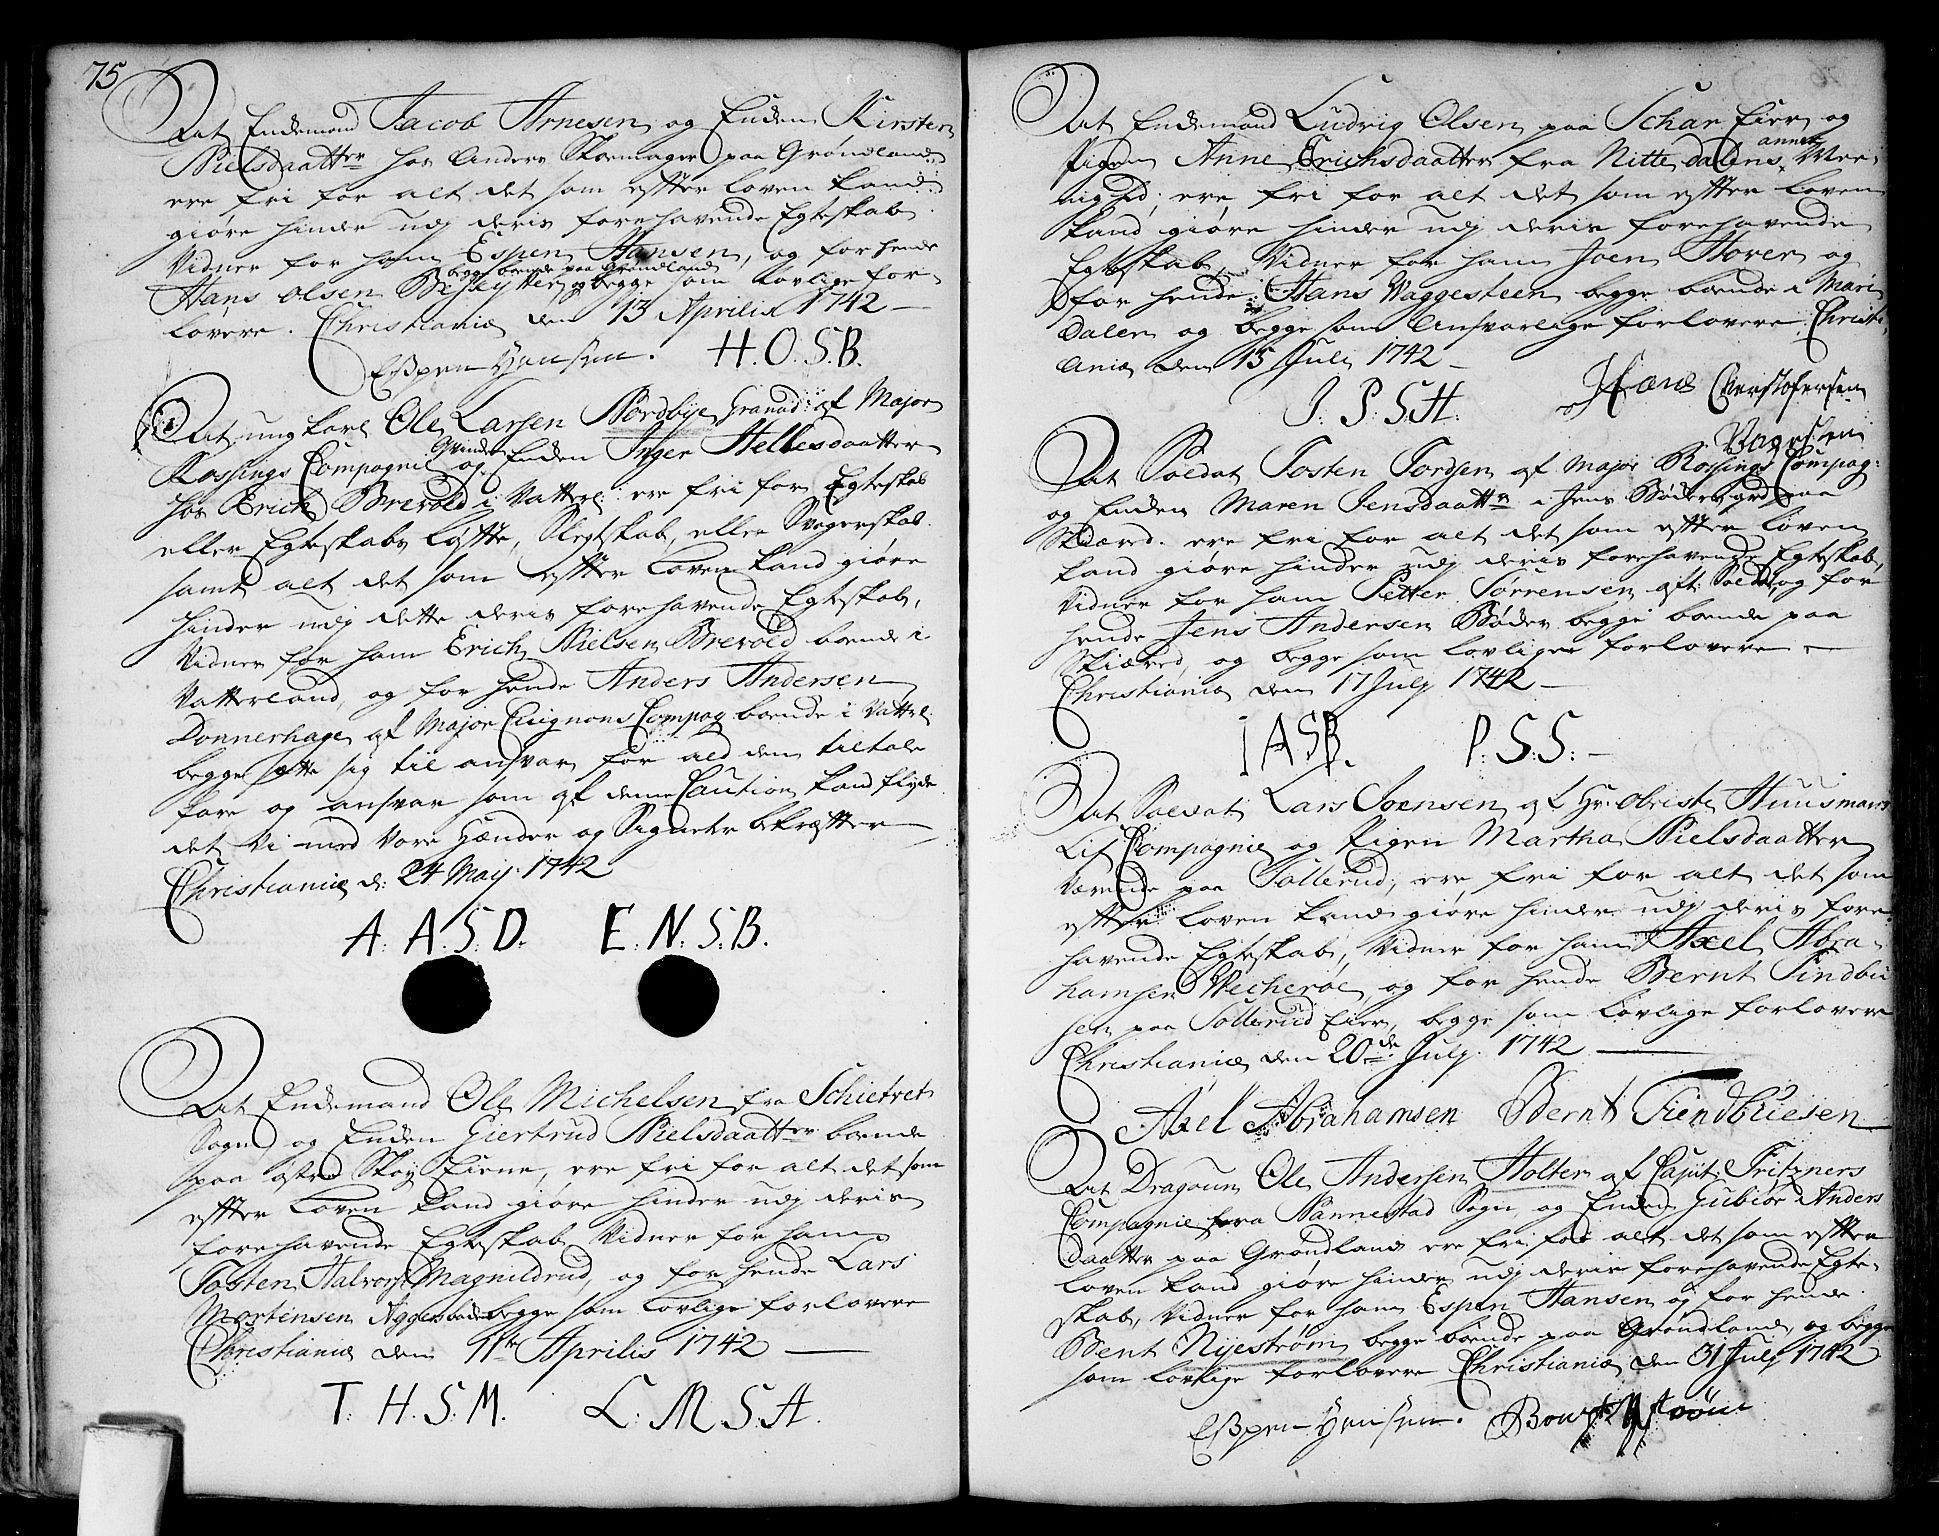 75
At Enckemand Jacob Arnesen og Encken Kirsten
Nielsdaatter hos Anders Skoemager paa Grønland
ere fri for alt det som effter Loven kand
giøre hinder udj deris forehavende Egteskab.
Vidner for ham Espen Hansen, og for hende
begge boende paa Grønland
Hans Olsen Bislytter og begge som Lovlige for-
lovere. Christiania den 13 Aprilis 1742
Eßpen Hansen. H.O.S.B.
At ung karl Ole Larsen Nordbye Granad: af Major
Grinder
Rossings Compagnie og Encken Inger Hellesdaatter
hos Erich Brevold i Vatterl: ere fri for Egteskab
eller Egteskabs Løffte, Slegtskab, eller Svogerskab.
samt alt det som effter Loven kand giøre
hinder udj dette deris forehavende Egteskab,
Vidner for ham Erich Nielsen Brevold boende i
Vatterland, og for hende Anders Andersen
Donnerhage af Major Compag boende i Vatterl:
begge sætte sig til ansvar for ald den tiltale
fare og ansvar som af denne Caution kand flyde
det Vi med Vore Hænder og Signeter bekræffter
Christiania d: 24 Maij: 1742
A. A. S. D. E. N. S. B.
At Enckemand Ole Michelsen fra Schietvet
Sogn og Encken Giertrud Nielsdaatter boende
paa Østre Skøy Eiene, ere fri for alt det som
effter Loven kand giøre hinder udj deris
forehavende Egteskab Vidner for ham
Tosten Halvors: Magnildrud, og for hende Lars
Mortensen Aggers begge som Lovlige forlovere
Christiania den 11te Aprilis 1742
T. H. S. M. L. M. S. A.
At Enckemand Ludvig Olsen paa Schar Eier og
annex
Pigen Anne Erichsdaatter fra Nittedalens Mee-
nighed, ere fri for alt det som effter Loven
kand giøre hinder udj deris forehavende
Egteskab, Vidner for ham Joen Hover og
for hende Hans Vaggesteen begge boende i Mari
dalen og begge som Ansvarlige forlovere Christi
ania den 15 Julj 1742
J. P. S. H. Hans Christofersen
At Soldat Tosten Tordsen af Major Rossings Compag:
og Encken Maren Jensdaatter i Jens Bøders grd paa
Skiæred. ere fri for alt det som effter Loven
kand giøre hinder udj deris forehavende Egteskab,
Vidner for ham Petter Sørrensen aft: Soldat, og for
hende Jens Andersen Bøder begge boende paa
Skiæred, og begge som Lovlige forlovere
Christiania den 17 Julj 1742
I A S B. P. S. S.
At Soldat Lars Joensen af Hr: Obriste Huusmans
Lif Compagnie og Pigen Martha Nielsdaatter
Værende paa Sollerud, ere fri for alt det som
effter Loven kand giøre hinder udj deris fore-
havende Egteskab, Vidner for ham Axel Abra-
hamsen Vecherøe, og for hende Bernt Findbu
sen paa Sollerud Eier, begge som Lovlige forlovere
Christiania den 20de Julj 1742
Axel Abrahamsen Bernt
At Dragoun Ole Andersen Holter af Capit: Fritzners
Compagnie fra Nannestad Sogn, og Encken Gubiør Anders
daatter paa Grønland ere fri for alt det som effter
Loven kand giøre hinder udj deris forehavende Egte-
skab, Vidner for ham Espen Hansen og for hende
Bent Nyestrøm begge boende paa Grønland, og begge
som Lovlige forlovere Christiania den 31 Julj 1742
Eßpen Hansen.